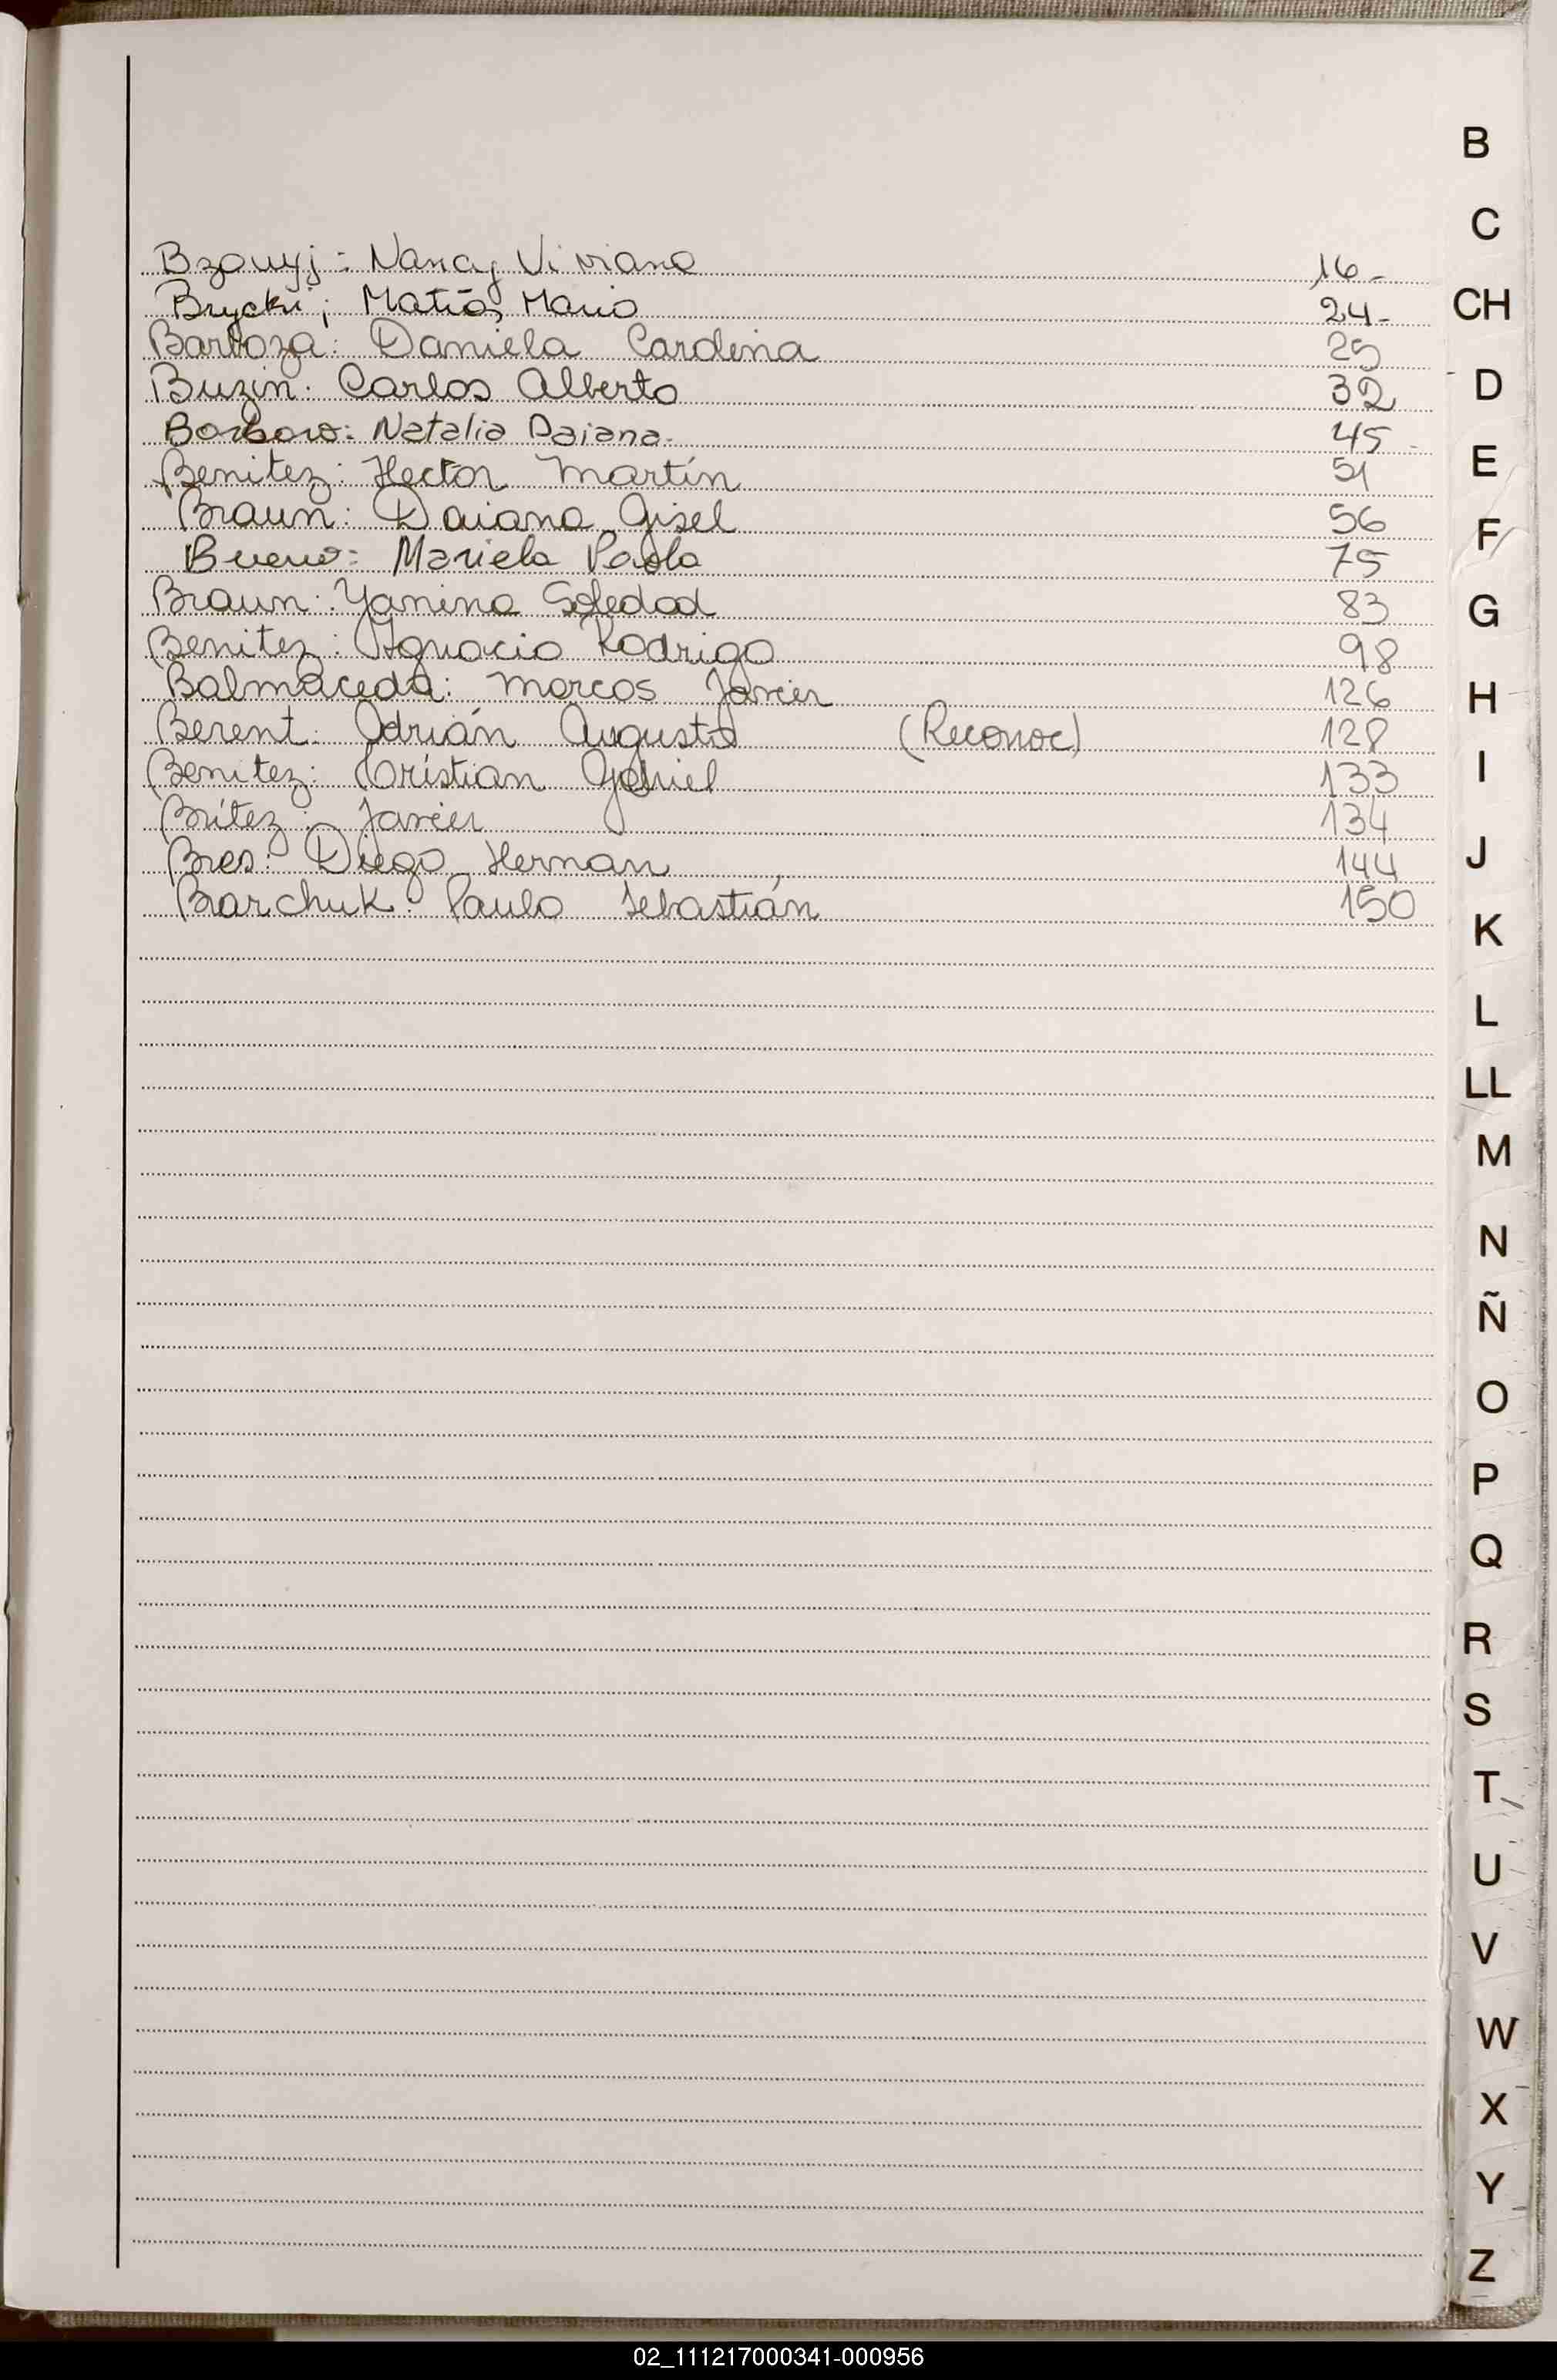 B
C
Bzowyj: Nancy Viviana 16-
Brycki; Matías Mario 24- CH
Barboza: Daniela Cardina 25
Buzin: Carlos Alberto 32 D
Natalia Daiana- 45-
Benitez: Hector Martín 51 E
Braun: Daiana Gisel 56 F
Bueno: Mariela Paola 75
Braun: Yanina Soledad 83 G
Benitez: Ignacio Rodrigo 98
Balmaceda: Marcos Javier 126 H
Berent: Adrián Augusto (Reconoc) 128
Benitez: Cristian Gabriel 133 I
Britez: Javier 134
Bres: Diego Hernan 144 J
Barchuk: Paulo Sebastián 150
K
L
LL
M
N
Ñ
O
P
Q
R
S
T
U
V
W
X
Y
Z
02_111217000341-000956